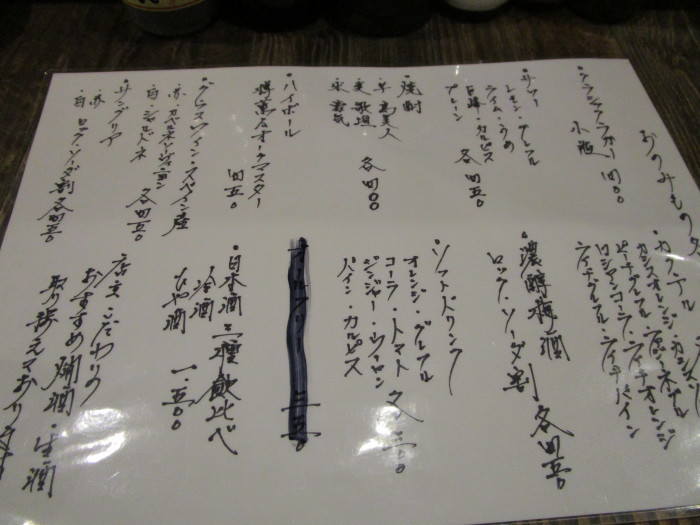 おのみもの
・クラシックラガー
小瓶 四〇〇
・サワー
レモン・グレフル
ライム・うめ
巨峰・カルピス
プレーン
各四五〇
・焼酎
芋 島美人
麦
米
各四〇〇
・ハイボール
樽薫るオークマスター
四五〇
・グラスワイン・スペイン産
赤・カベルネソーヴィニヨン
白・シャルドネ
各四五〇
・サングリヤ
赤
白 ロック・ソーダ割 各四五〇
・カクテル
カシスオレンジ・カシス
ロシアンコーラ・ライチオレンジ
ライチグレフル・ライチパイン
・濃醇梅酒
ロック・ソーダ割 各四五〇
・ソフトドリンク
オレンジ・グレフル
コーラ・トマト
ジンジャー・ウーロン
パイン・カルピス
各二三〇
オールフリー 三五〇
・日本酒三種飲比べ
冷酒
ひや酒 一、五〇〇
店主こだわりの
おすすめ 燗酒・生酒
取り揃えております